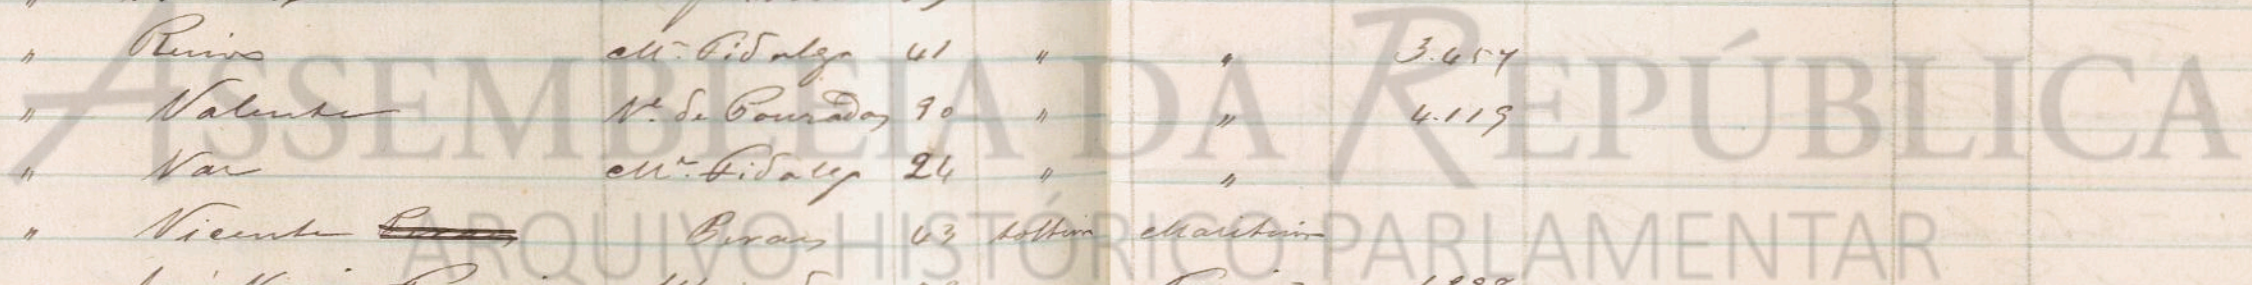 " Ruivo Mn. Fidalgo 41 " " 3.457
" Valente Ve. de Pourados 90 " " 4.119
" Vaz Mn. Fidalgo 24 " "
" Vicente Beraes 43 solteiro Maritimo
ASSEMBLEIA DA REPÚBLICA
ARQUIVO HISTÓRICO PARLAMENTAR